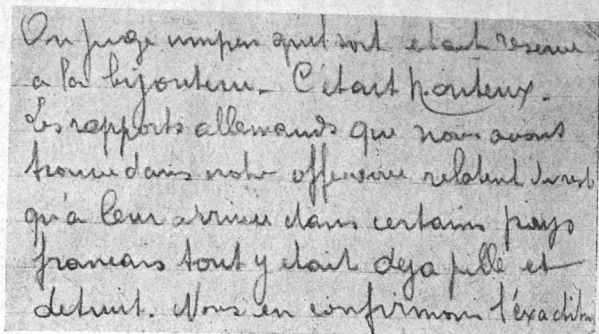 On juge un peu quel sort etait reservé
a la bijouterie. C'était honteux.
Les rapports allemands que nous avons
trouvé dans notre offensive relatent du rest
qu'à leur arrivée dans certains pays
francais tout y etait deja pillé et
detruit. Nous en confirmons l'éxactitu